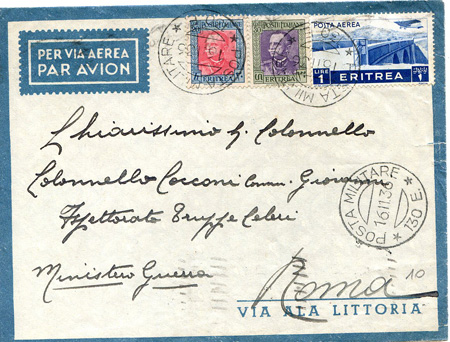 PER VIA AEREA
PAR AVION
POSTE ITALIANE
ERITREA
POSTE ITALIANE
ERITREA
POSTA AEREA
LIRE 1
ERITREA
1
Chiarissimo Sg. Colonnello
Colonnello Cocconi Comm. Giovanni
Ispettorato Truppe Celeri
Ministero Guerra
Roma
POSTA MILITARE
16.11.36
130 E
10
VIA ALA LITTORIA